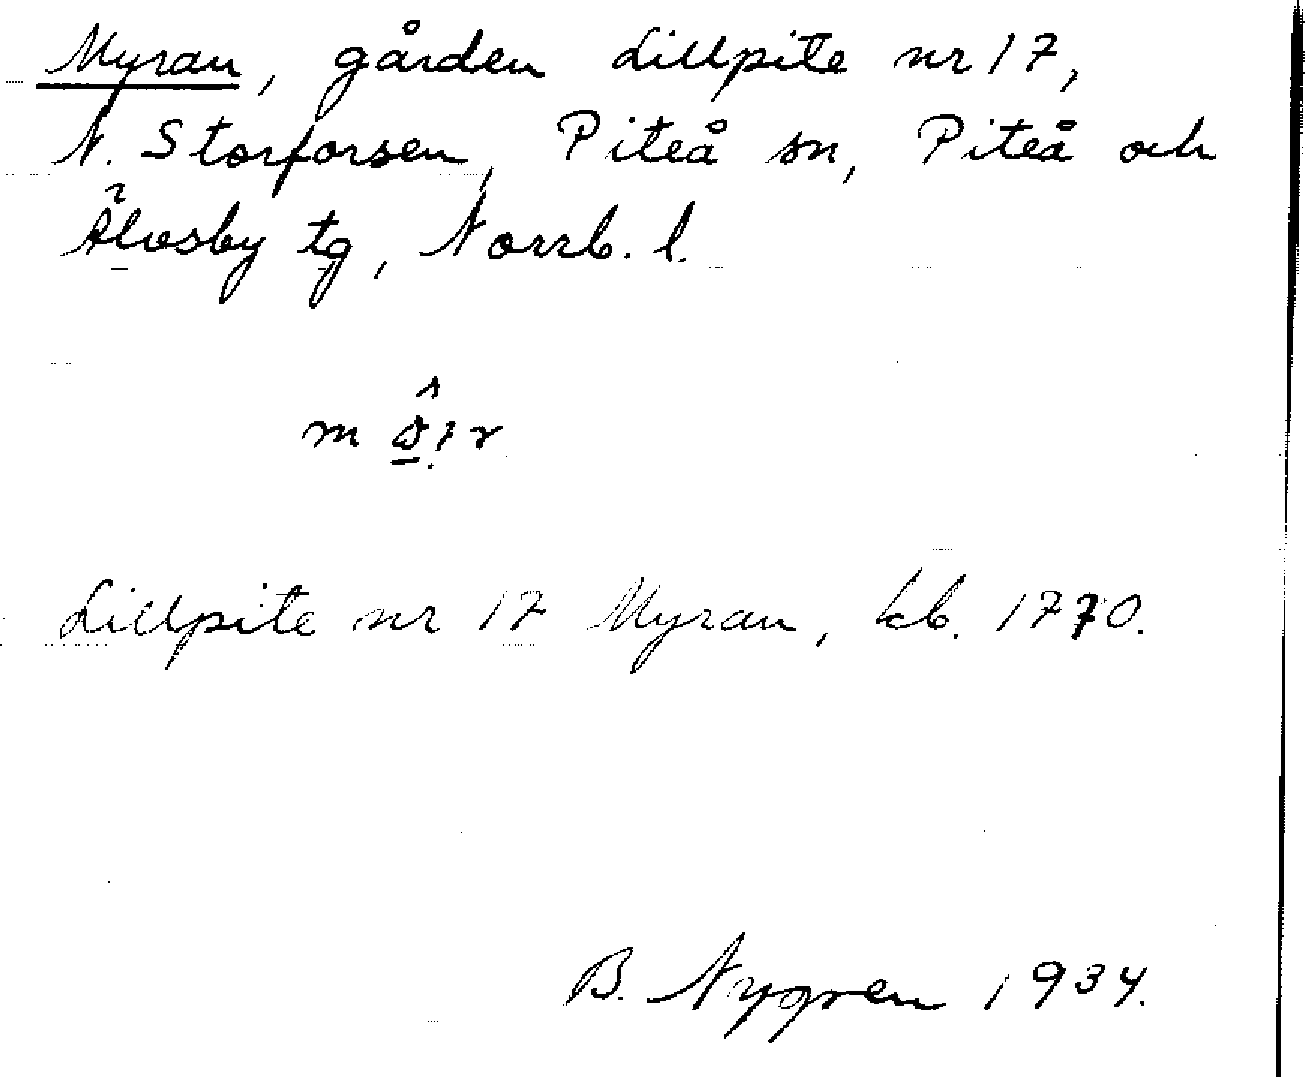 Myran, gården Lillpite nr 17,
N. Storforsen, Piteå sn, Piteå och
Älvsby tg, Norrb. l.
Lillpite nr 17 Myran, kb. 1770.
B. Nygren 1934.